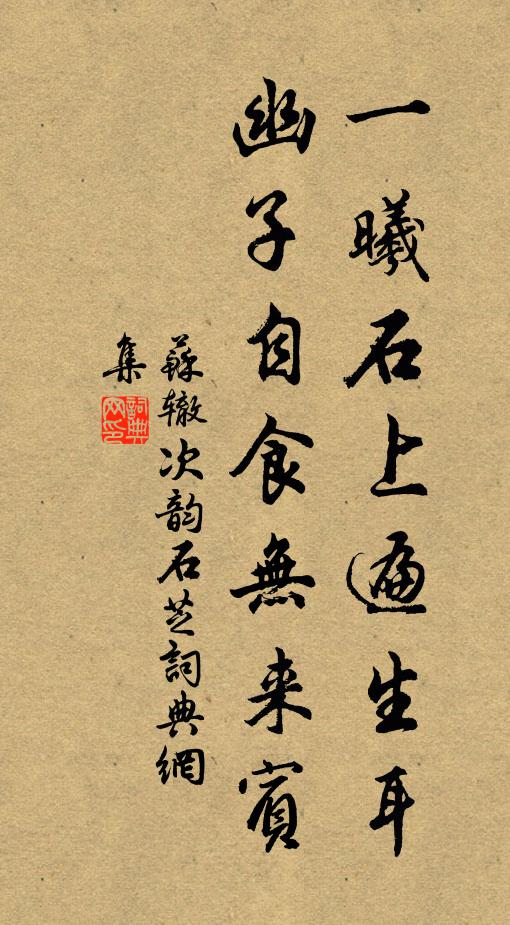 一曦石上遍生耳
幽子自食無来賓
蘇辙次韵石芝詞典網
集
詞典網印